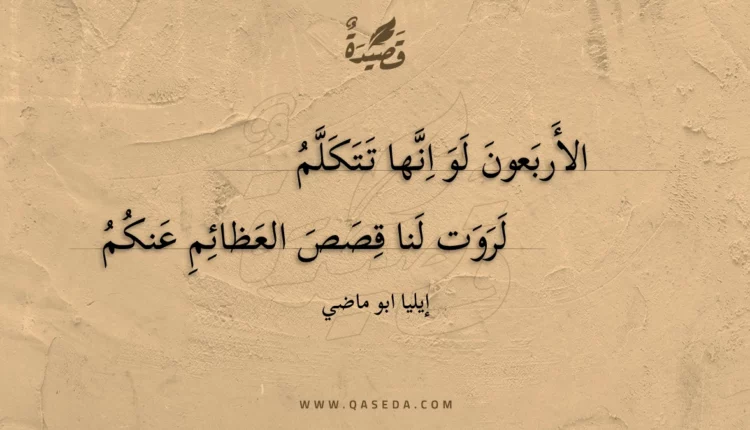 قَصِيْدَةٌ
الأَربَعونَ لَوَ اِنَّها تَتَكَلَّمُ
لَرَوَت لَنا قِصَصَ العَظائِمِ عَنكُمُ
إيليا ابو ماضي
WWW.QASEDA.COM